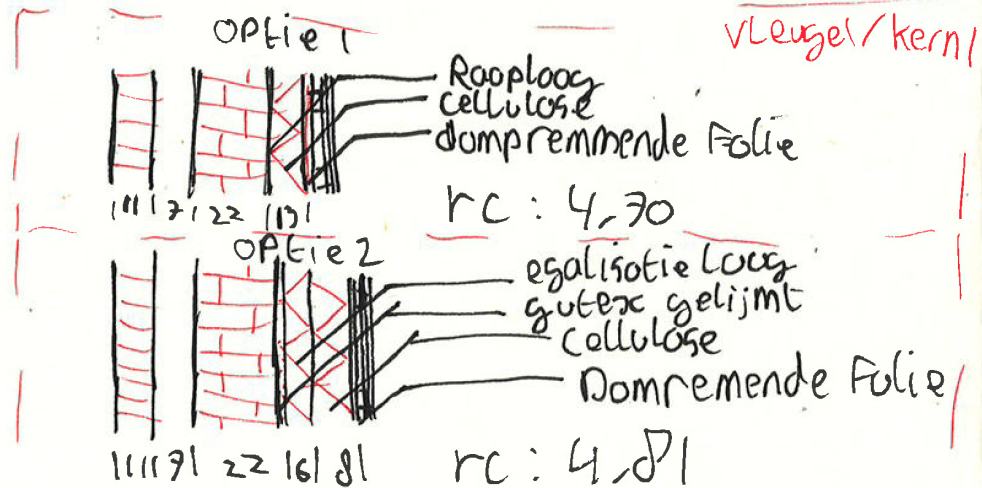 OPtie 1
vleugel/kern 1
Raaplaag
cellulose
dampremmende Folie
11 7 22 13
rc : 4,70
OPtie 2
egalisatie laag
gutex gelijmt
cellulose
Damremende Folie
11 7 22 6 8
rc : 4,81